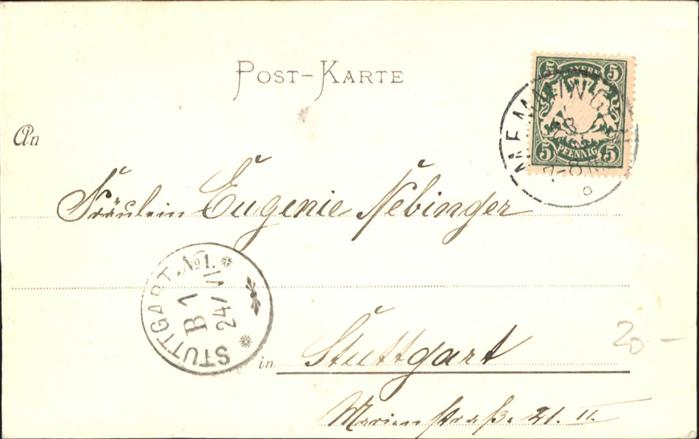 POST-KARTE
5 BAYERN 5
5 PFENNIG 5
MEMMING
An
Fräulein Eugenie Nebinger
STUTTGART. No 1.
B 1
24/VI
in Stuttgart
Marienstraße 21. II.
20-